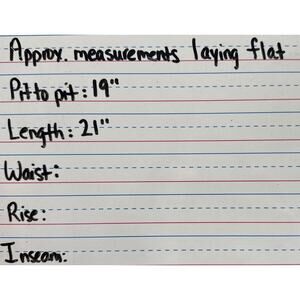 Approx. measurements laying flat
Pit to pit: 19"
Length: 21"
Waist:
Rise:
Inseam: